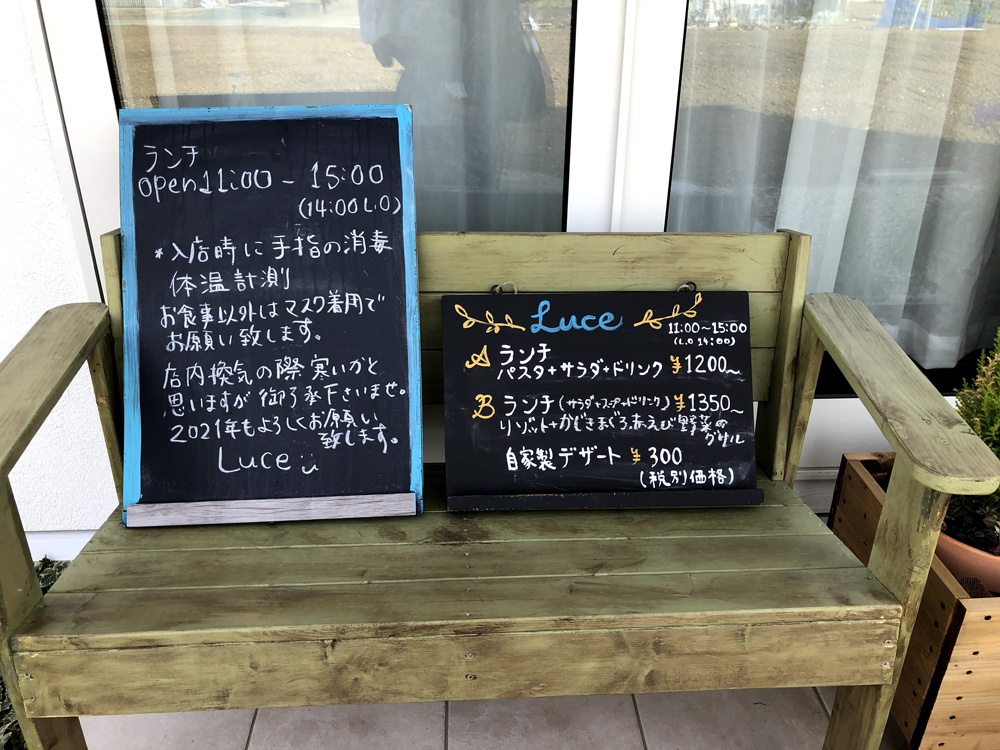 ランチ
open 11:00 - 15:00
(14:00 L.O)
*入店時に手指の消毒
体温計測
お食事以外はマスク着用で
お願い致します。
店内換気の際寒いかと
思いますが御了承下さいませ。
2021年もよろしくお願い
致します。
Luce
Luce
11:00〜15:00
(L.O 14:00)
A ランチ
パスタ+サラダ+ドリンク ¥1200〜
B ランチ(サラダ+スープ+ドリンク) ¥1350〜
リゾット+かじきまぐろ赤えび野菜の
グリル
自家製デザート ¥300
(税別価格)